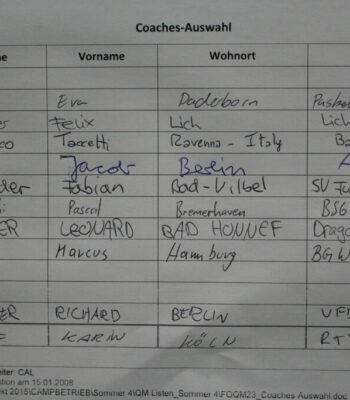 Coaches-Auswahl
me Vorname Wohnort
Eva Paderborn
Felix Lich Lich
co Taccetti Ravenna - Italy
Jacob Berlin
der Fabian Bad-Vilbel
Pascal Bremerhaven BSG
ER LEONARD BAD HONNEF Drago
Marcus Hamburg BG W
ER RICHARD BERLIN
KARIN KÖLN
eiter: CAL
tion am 15 01 2008
ekt 2015\CAMPBETRIEB\Sommer 4\QM Listen_Sommer 4\FOQM23_Coaches Auswahl.doc